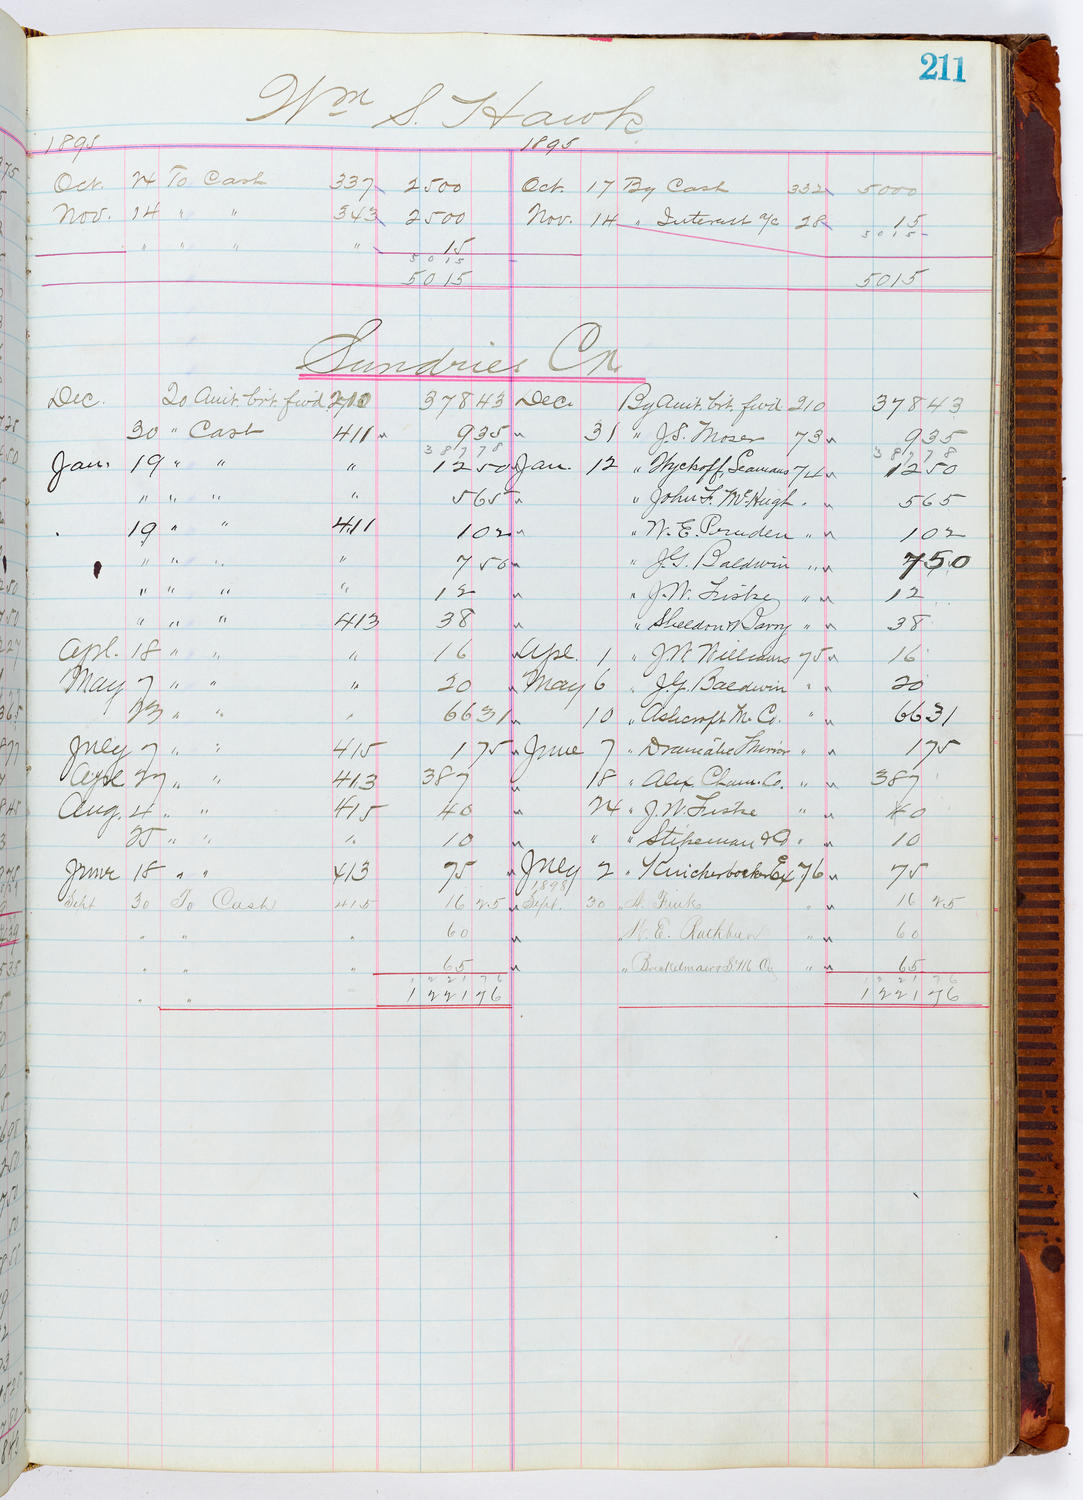 211
Wm S. Hawk
1895 1895
Oct. 24 To Cash 337 2500 Oct. 17 By Cash 332 5000
Nov. 14 " " 343 2500 Nov. 14 " Interest a/c 28 15
" " " " 15 5015
5015
5015 5015
Sundries Cr.
Dec. To Amt. brt. fwd 210 378 43 Dec. By Amt. brt. fwd 210 378 43
30 " Cash 411 9 35 31 " J.S. Moser 73 9 35
387 78 387 78
Jan. 19 " " " 12 50 Jan. 12 " Wyckoff, Seamans 74 12 50
" " " " 5 65 " John F. McHugh " 5 65
19 " " 411 1 02 " W.E. Pruden " 1 02
" " " " 7 50 " J.G. Baldwin " 7 50
" " " " 12 " J.W. Fiske " 12
" " " 413 38 " Sheldon & Barry " 38
Apl. 18 " " " 16 Apl. 1 " J.W. Williams 75 16
May 7 " " " 20 May 6 " J.G. Baldwin " 20
23 " " " 66 31 10 " Ashcroft M. Co. " 66 31
July 7 " " 415 1 75 June 7 " Dramatic Mirror " 1 75
Apl 27 " " 413 387 18 " Alex Cham. Co. " 387
Aug. 4 " " 415 40 24 " J.W. Fiske " 40
25 " " " 10 " " " 10
June 18 " " 413 75 July 2 " Knickerbocker Ex 76 75
1898
Sept 30 To Cash 415 16 25 Sept. 30 " A. Fink " 16 25
" " " 60 " W.E. " 60
" " " 65 " " 65
1221 76 1221 76
" " 1221 76 1221 76